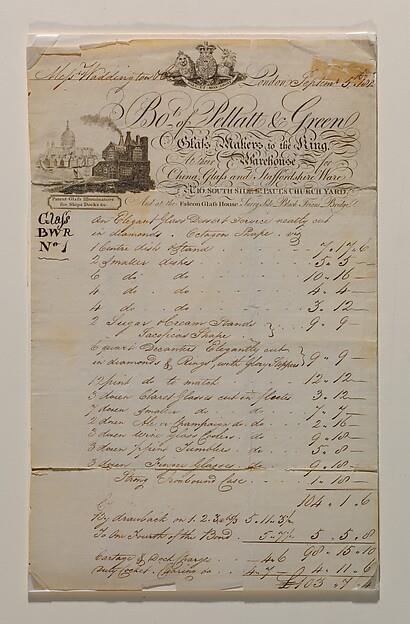 Messrs Waddington & Co London Septemr 5th
Bot. of Pellatt & Green
Glass Makers to the King.
At their Warehouse for
China, Glass and Staffordshire Ware
No. 10, SOUTH SIDE ST. PAULS CHURCH YARD,
And at the Falcon Glass House, Surry Side, Black Friars Bridge.
Patent Glass Illuminators
for Ships Decks &c.
Glass
BWR
No 1
An Elegant Glass Dessert Service neatly cut
in diamonds. Octagon Shape. viz
1 Centre dish & Stand 7 . 17 . 6
2 smaller dishes 5 . 5 –
6 do do 10 . 16 –
4 do do 4 . 4 –
4 do do 3 . 12 –
2 Sugar & Cream Stands 9 . 9 –
Shape
6 quart Decanters Elegantly cut
in diamonds & Rings, with Stoppers 9 . 9 –
12 pint do to match 12 . 12 –
3 dozen Claret Glasses cut in flutes 3 . 12
7 dozen smaller do do 7 . 7 –
2 dozen Ale or Champaign do do 2 . 16 –
3 dozen Wine Glass Coolers do 9 . 18 –
3 dozen ½ pint Tumblers do 5 . 8 –
3 dozen Finger Glasses do 9 . 18 –
Strong Case 1 . 18 –
104 . 1 . 6
By drawback on 1.2.3 5 . 11 . 3½
To One Fourth of the Bond 5 . 5 . 8
98 . 15 . 10
Cartage & Dock Charges 4 . 6
4 . 11 . 6
£103 . 7 . 4